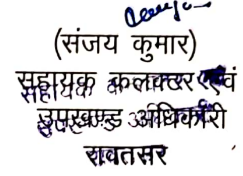 (संजय कुमार)
सहायक कलक्टर एवं
उपखण्ड अधिकारी
रावतसर